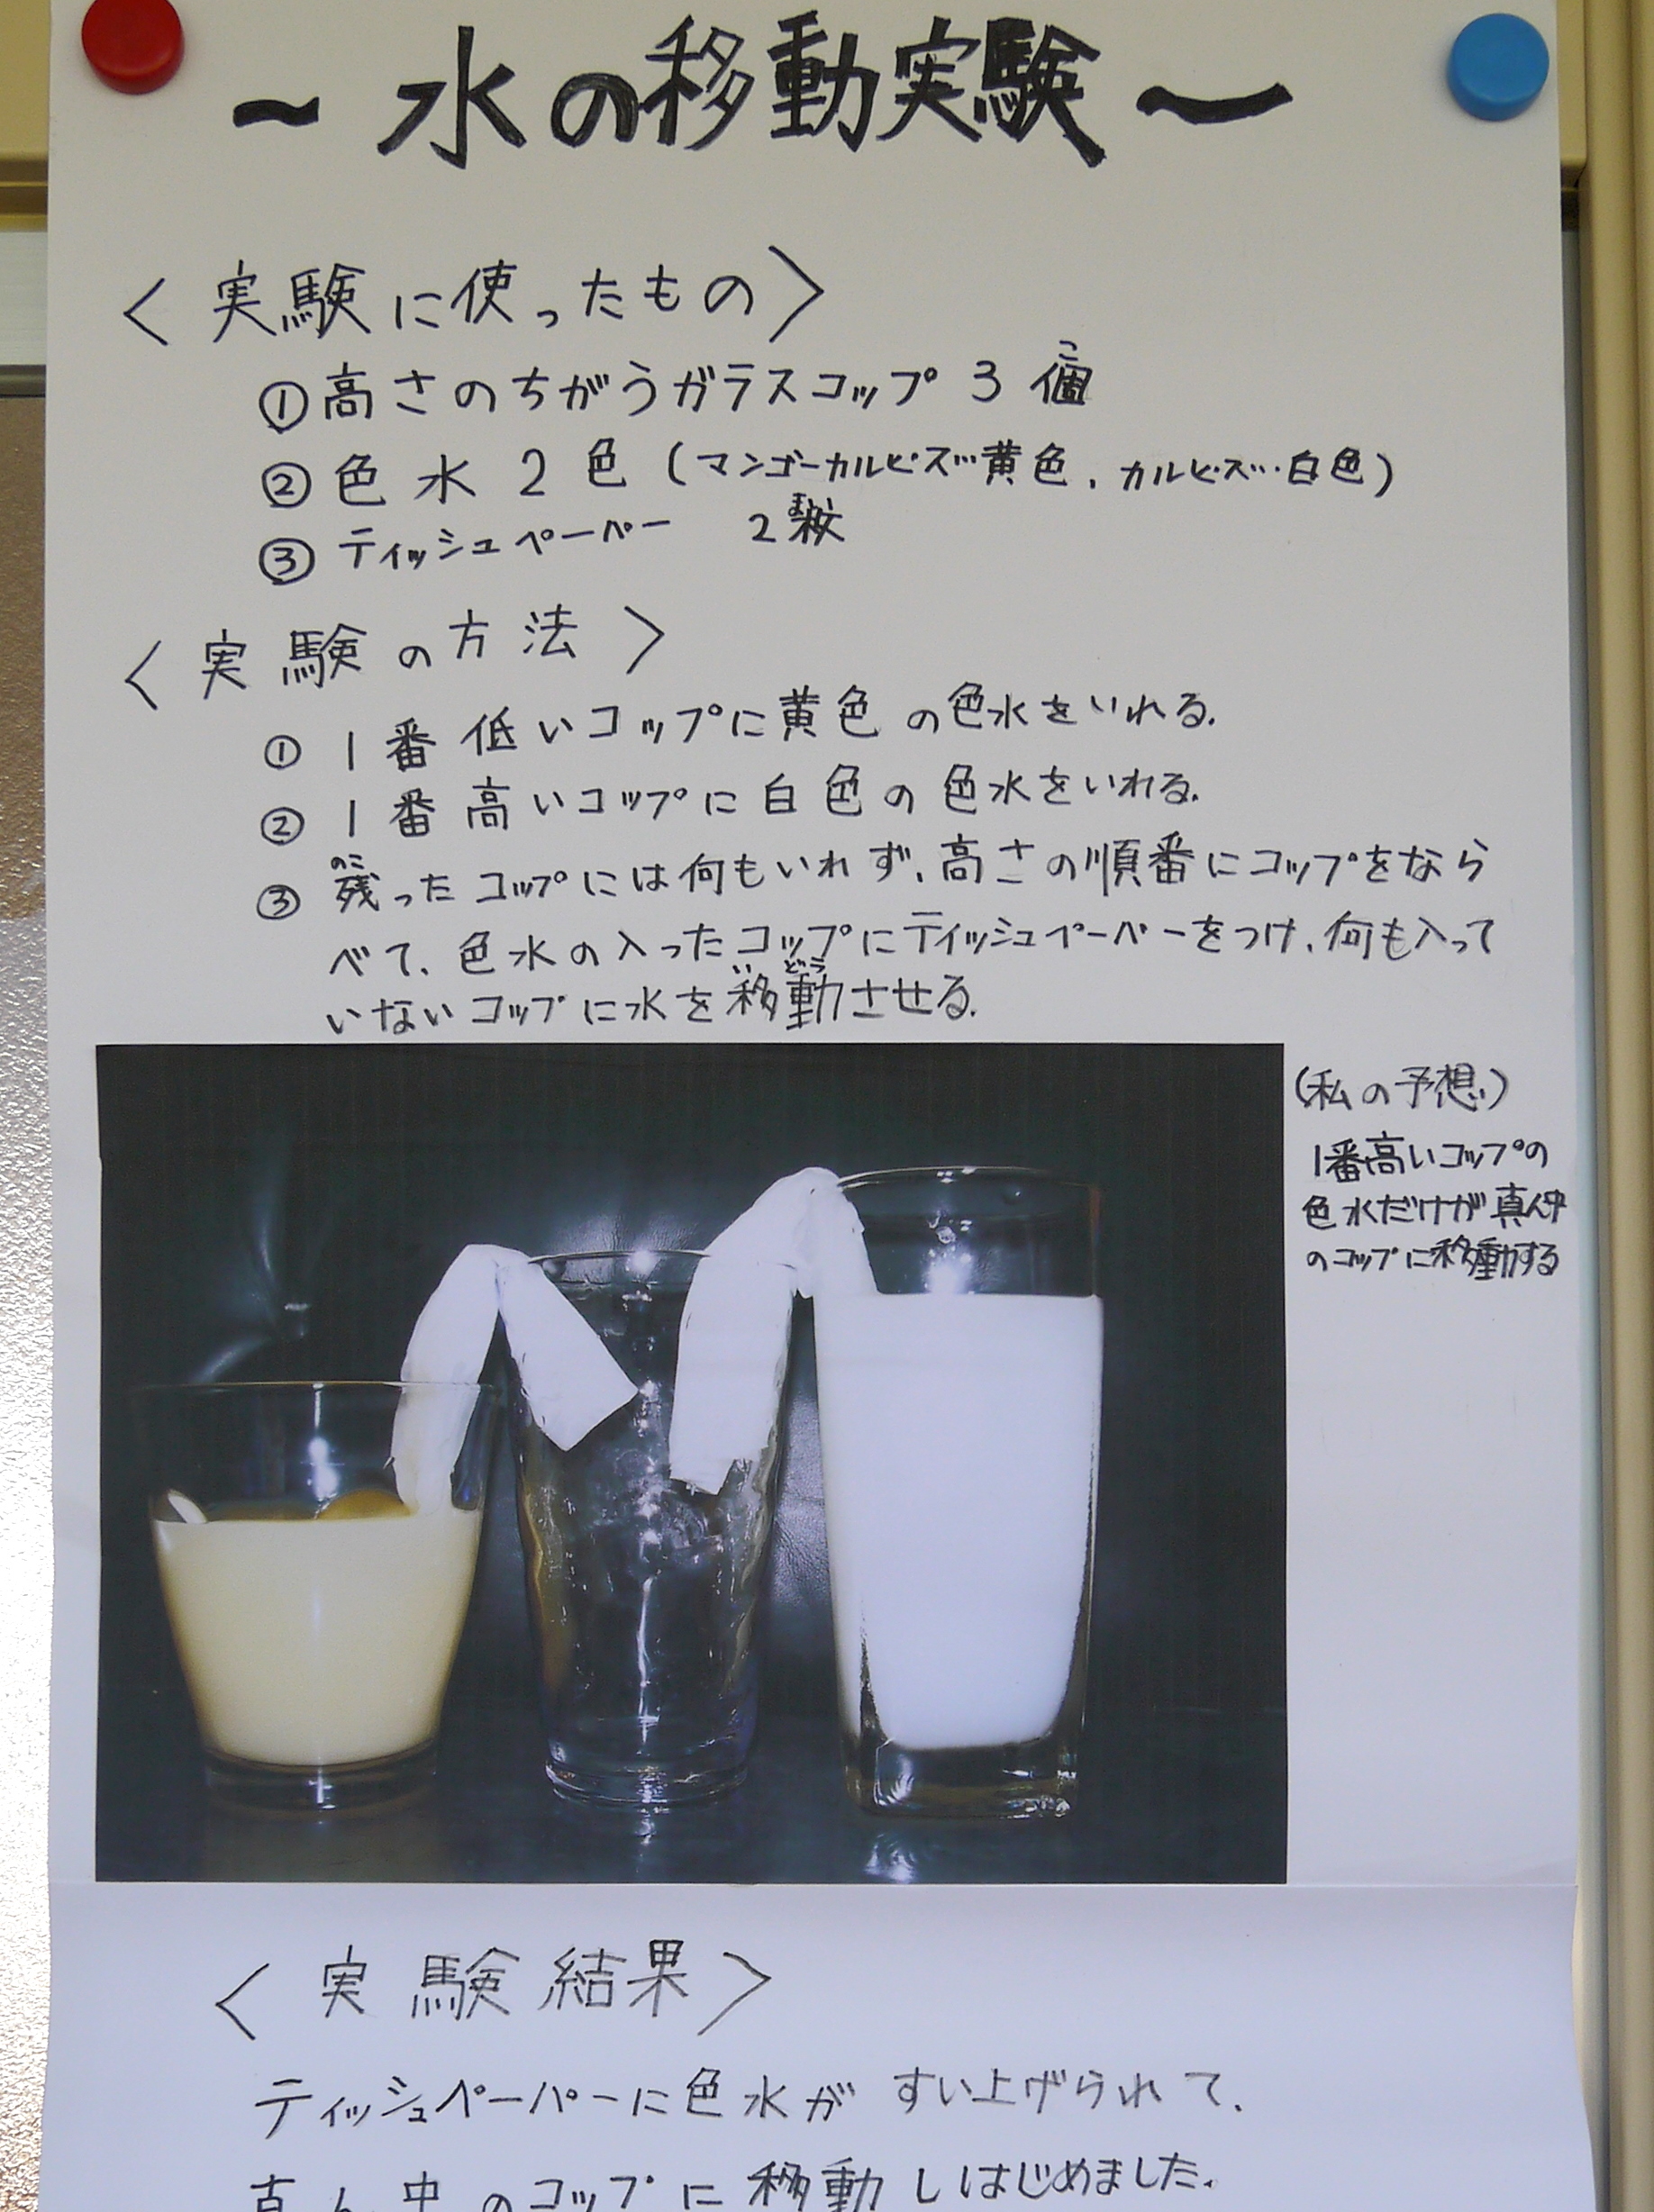 ～水の移動実験～
＜実験に使ったもの＞
①高さのちがうガラスコップ 3個
こ
②色水2色(マンゴーカルピス…黄色、カルピス…白色)
③ティッシュペーパー 2枚
まい
＜実験の方法＞
①1番低いコップに黄色の色水をいれる。
②1番高いコップに白色の色水をいれる。
のこ
③残ったコップには何もいれず、高さの順番にコップをなら
べて、色水の入ったコップにティッシュペーパーをつけ、何も入って
いどう
いないコップに水を移動させる。
(私の予想)
1番高いコップの
色水だけが真ん中
のコップに移動する
＜実験結果＞
ティッシュペーパーに色水がすい上げられて、
真ん中のコップに移動しはじめました。